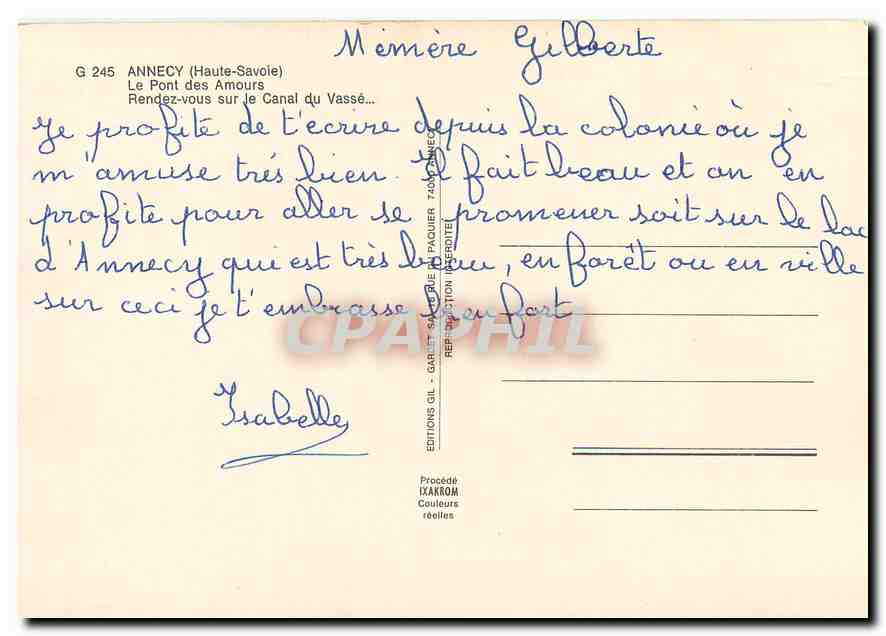 Mémère Gilberte
G 245 ANNECY (Haute-Savoie)
Le Pont des Amours
Rendez-vous sur le Canal du Vassé...
Je profite de t'écrire depuis la colonie où je
m'amuse très bien. Il fait beau et on en
profite pour aller se promener soit sur le lac
d'Annecy qui est très beau, en forêt ou en ville
sur ceci je t'embrasse bien fort
Isabelle
EDITIONS GIL - GARDET SA, 16 RUE DU PAQUIER 74000 ANNECY
REPRODUCTION INTERDITE
CPAPHIL
Procédé
IXAKROM
Couleurs
réelles